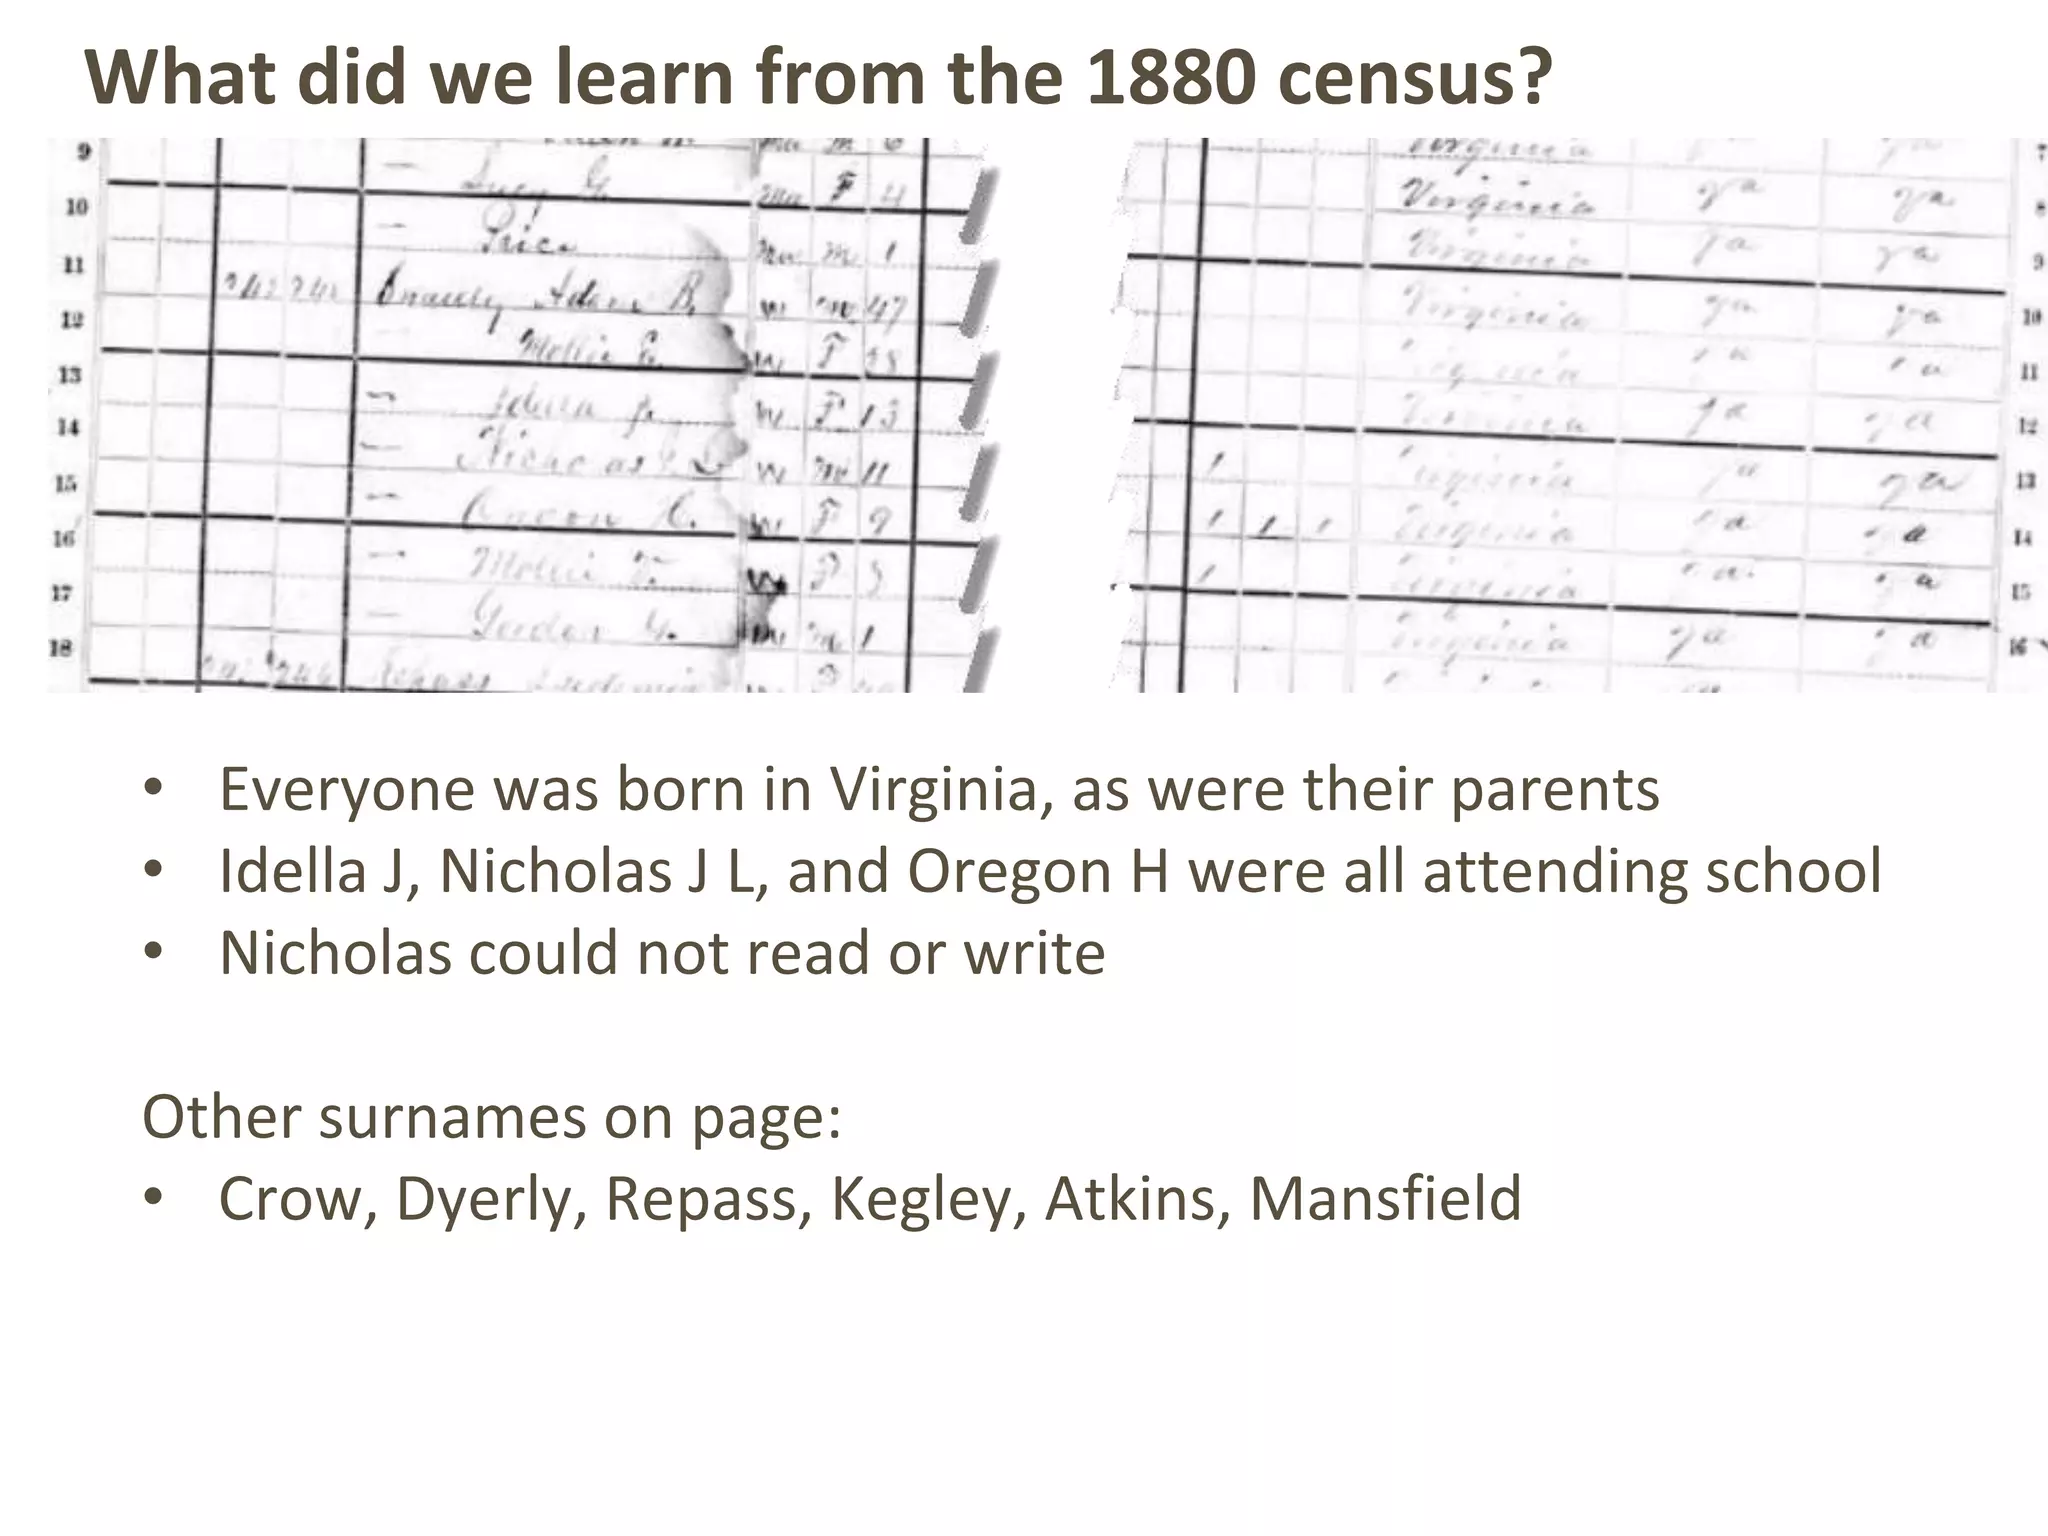 What did we learn from the 1880 census?
9
10 — Lucy G. Mu F 4 Virginia Va Va 8
11 — Price Mu M 1 Virginia Va Va 9
12 Adam B. W M 47 Virginia Va Va 10
13 Mollie E. W F 38 Virginia Va Va 11
14 — Idella J. W F 13 Virginia Va Va 12
15 — Nicholas J. L. W M 11 1 Virginia Va Va 13
16 — Oregon H. W F 9 1 1 1 Virginia Va Va 14
17 — Mollie W F 1 Virginia Va Va 15
18 — W M 1 Virginia Va Va 16
• Everyone was born in Virginia, as were their parents
• Idella J, Nicholas J L, and Oregon H were all attending school
• Nicholas could not read or write
Other surnames on page:
• Crow, Dyerly, Repass, Kegley, Atkins, Mansfield